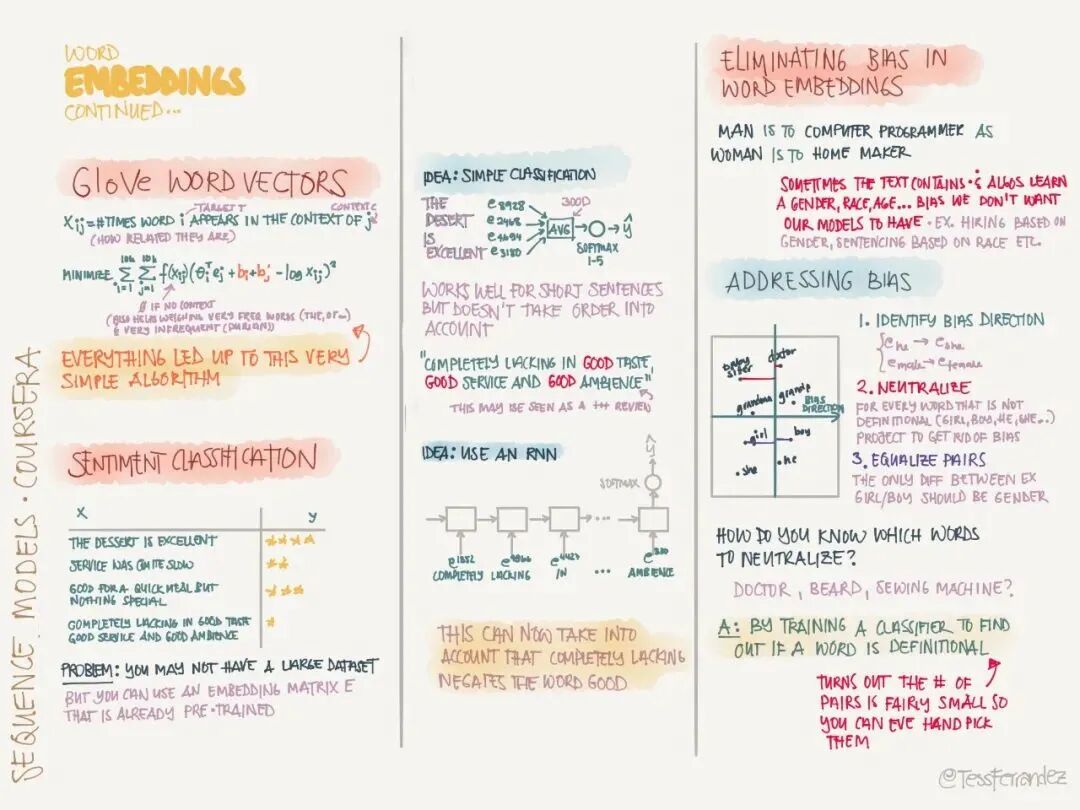 WORD
EMBEDDINGS
CONTINUED...
GloVe WORD VECTORS
TARGET T
CONTEXT C
Xij = # TIMES WORD i APPEARS IN THE CONTEXT OF j
(HOW RELATED THEY ARE)
MINIMIZE Σ Σ f(Xij)(θiᵀej + bi + bj' - log Xij)²
i=1 j=1
IF NO CONTEXT
(ALSO HELPS WEIGHING VERY FREQ WORDS (THE, OF...)
& VERY INFREQUENT (DURIAN))
EVERYTHING LED UP TO THIS VERY
SIMPLE ALGORITHM
SENTIMENT CLASSIFICATION
X y
THE DESSERT IS EXCELLENT ★★★★
SERVICE WAS QUITE SLOW ★★
GOOD FOR A QUICK MEAL BUT
NOTHING SPECIAL ★★★
COMPLETELY LACKING IN GOOD TASTE ★
GOOD SERVICE AND GOOD AMBIENCE
PROBLEM: YOU MAY NOT HAVE A LARGE DATASET
BUT YOU CAN USE AN EMBEDDING MATRIX E
THAT IS ALREADY PRE-TRAINED
SEQUENCE MODELS · COURSERA
IDEA: SIMPLE CLASSIFICATION
THE e8928
DESERT e2468
IS e4694
EXCELLENT e3180
300D
AVG
ŷ
SOFTMAX
1-5
WORKS WELL FOR SHORT SENTENCES
BUT DOESN'T TAKE ORDER INTO
ACCOUNT
"COMPLETELY LACKING IN GOOD TASTE,
GOOD SERVICE AND GOOD AMBIENCE"
THIS MAY BE SEEN AS A +++ REVIEW
IDEA: USE AN RNN
ŷ
SOFTMAX
e1852 e4966 e4427 ... e330
COMPLETELY LACKING IN ... AMBIENCE
THIS CAN NOW TAKE INTO
ACCOUNT THAT COMPLETELY LACKING
NEGATES THE WORD GOOD
ELIMINATING BIAS IN
WORD EMBEDDINGS
MAN IS TO COMPUTER PROGRAMMER AS
WOMAN IS TO HOME MAKER
SOMETIMES THE TEXT CONTAINS & ALGOS LEARN
A GENDER, RACE, AGE... BIAS WE DON'T WANT
OUR MODELS TO HAVE · EX. HIRING BASED ON
GENDER, SENTENCING BASED ON RACE ETC.
ADDRESSING BIAS
baby
sitter
doctor
grandma
grandp
BIAS
DIRECTION
girl
boy
she
he
1. IDENTIFY BIAS DIRECTION
ehe → eshe
emale → efemale
2. NEUTRALIZE
FOR EVERY WORD THAT IS NOT
DEFINITIONAL (GIRL, BOY, HE, SHE...)
PROJECT TO GET RID OF BIAS
3. EQUALIZE PAIRS
THE ONLY DIFF BETWEEN EX
GIRL/BOY SHOULD BE GENDER
HOW DO YOU KNOW WHICH WORDS
TO NEUTRALIZE?
DOCTOR, BEARD, SEWING MACHINE?
A: BY TRAINING A CLASSIFIER TO FIND
OUT IF A WORD IS DEFINITIONAL
TURNS OUT THE # OF
PAIRS IS FAIRLY SMALL SO
YOU CAN EVE HAND PICK
THEM
@TessFerrandez